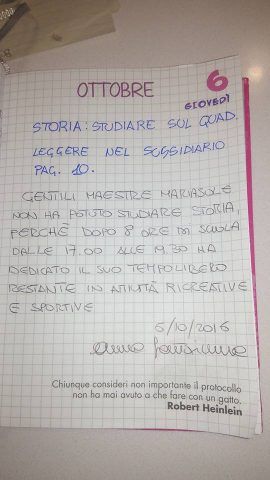 OTTOBRE
6
GIOVEDÌ
STORIA: STUDIARE SUL QUAD.
LEGGERE NEL SUSSIDIARIO
PAG. 10.
GENTILI MAESTRE MARIASOLE
NON HA POTUTO STUDIARE STORIA,
PERCHÈ DOPO 8 ORE DI SCUOLA
DALLE 17.00 ALLE 19.30 HA
DEDICATO IL SUO TEMPO LIBERO
RESTANTE IN ATIVITÀ RICREATIVE
E SPORTIVE
6/10/2016
Chiunque consideri non importante il protocollo
non ha mai avuto a che fare con un gatto.
Robert Heinlein